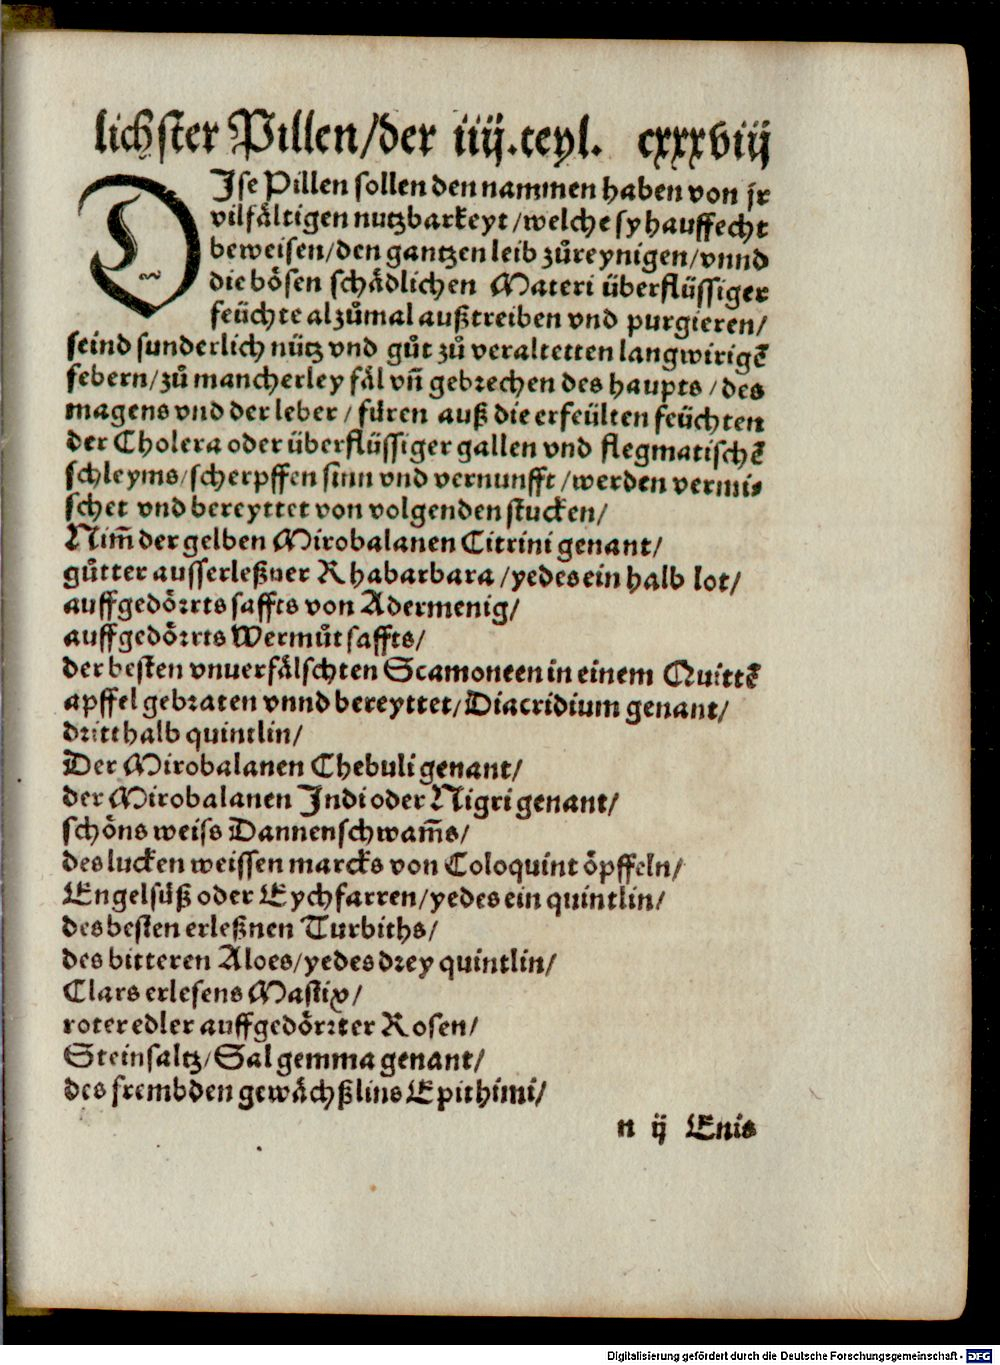 lichster Pillen/der iiij.teyl. cxxxviij
DIse Pillen sollen den nammen haben von jr
vilfåltigen nutzbarkeyt/welche sy hauffecht
beweisen/den gantzen leib zůreynigen/vnnd
die bösen schådlichen Materi überflüssiger
feüchte alzůmal außtreiben vnd purgieren/
seind sunderlich nütz vnd gůt zů veraltetten langwirigē
febern/zů mancherley fål vñ gebrechen des haupts/des
magens vnd der leber/füren auß die erfeülten feüchten
der Cholera oder überflüssiger gallen vnd flegmatischē
schleyms/scherpffen sinn vnd vernunfft/werden vermi-
schet vnd bereyttet von volgenden stucken/
Nim̃ der gelben Mirobalanen Citrini genant/
gůtter ausserleßner Rhabarbara/yedes ein halb lot/
auffgedörrts saffts von Adermenig/
auffgedörrts Wermůt saffts/
der besten vnuerfålschten Scamoneen in einem Quittē
apffel gebraten vnnd bereyttet/Diacridium genant/
dritthalb quintlin/
Der Mirobalanen Chebuli genant/
der Mirobalanen Indi oder Nigri genant/
schöns weiss Dannenschwam̃s/
des lucken weissen marcks von Coloquint öpffeln/
Engelsüß oder Eychfarren/yedes ein quintlin/
des besten erleßnen Turbiths/
des bitteren Aloes/yedes drey quintlin/
Clars erlesens Mastix/
roter edler auffgedörrter Rosen/
Steinsaltz/Sal gemma genant/
des frembden gewåchßlins Epithimi/
n ij Enis
Digitalisierung gefördert durch die Deutsche Forschungsgemeinschaft - DFG